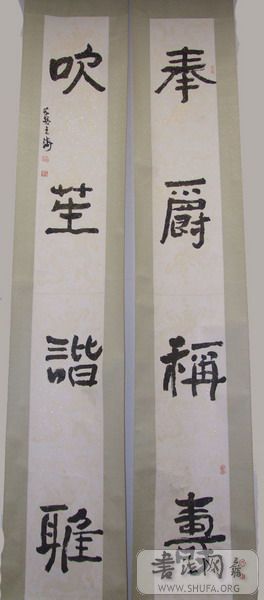 奉爵稱壽
吹笙諧雅
書法网
WWW.SHUFA.ORG